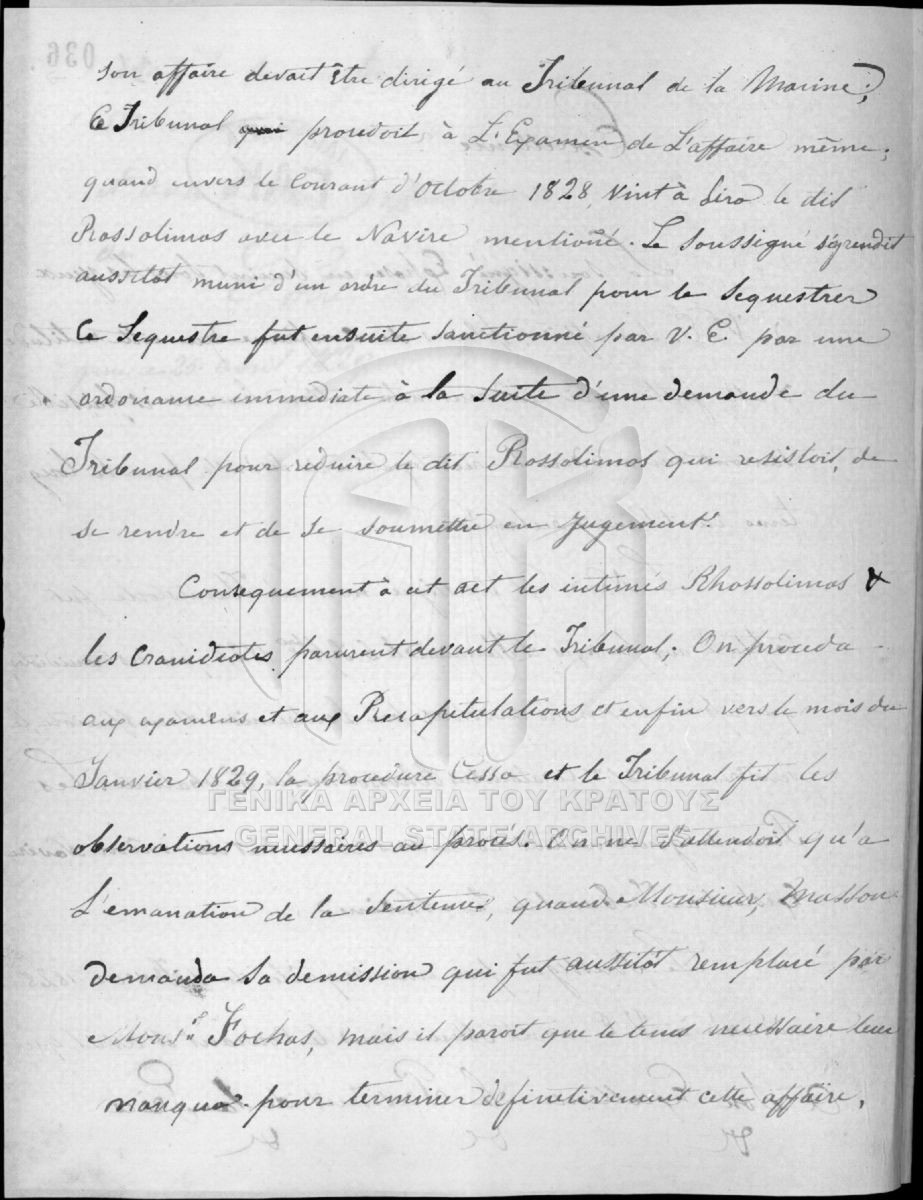 036
son affaire devait être dirigé au Tribunal de la Marine;
Ce Tribunal procedoit à L'Examen de L'affaire même;
quand envers le Courant d'Octobre 1828, vint à Sira le dit
Rossolimos avec le Navire mentioné. Le Soussigné s'y rendit
aussitôt muni d'un ordre du Tribunal pour le Sequestrer
Ce Sequestre fut ensuite Sanctionné par V. E. par une
ordonance immediate à la Suite d'une demande du
Tribunal pour reduire le dit Rossolimos qui resistoit, de
se rendre et de se soumettre en Jugement.
Consequement à cet act les intimés Rhossolimos &
les Cranidiotes parurent devant le Tribunal; On proceda
aux examens et aux Recapitulations et enfin vers le mois du
Janvier 1829, la procedure Cessa et le Tribunal fit les
ΓΕΝΙΚΑ ΑΡΧΕΙΑ ΤΟΥ ΚΡΑΤΟΥΣ
GENERAL STATE ARCHIVES
observations necessaires au procés. On ne S'attendoit qu'a
L'emanation de la Sentence, quand Monsieur, Masson
demanda Sa demission qui fut aussitôt remplacé par
Monsr. Fochas, mais il paroit que le tems necessaire leur
manqua pour terminer definetivement cette affaire,